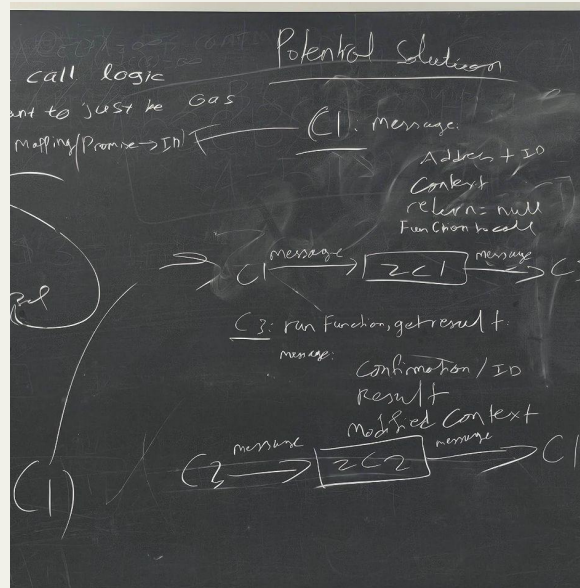 Potential Solution
. call logic
ant to just be Gas
Mapping(Promise → ID)
C1: message:
Address + ID
Context
return = null
Function to call
C1 message → 2C1 message → C
C3: run Function, get result.
message:
Confirmation / ID
Result
Modified Context
C3 message → 2C2 message → C1
C1